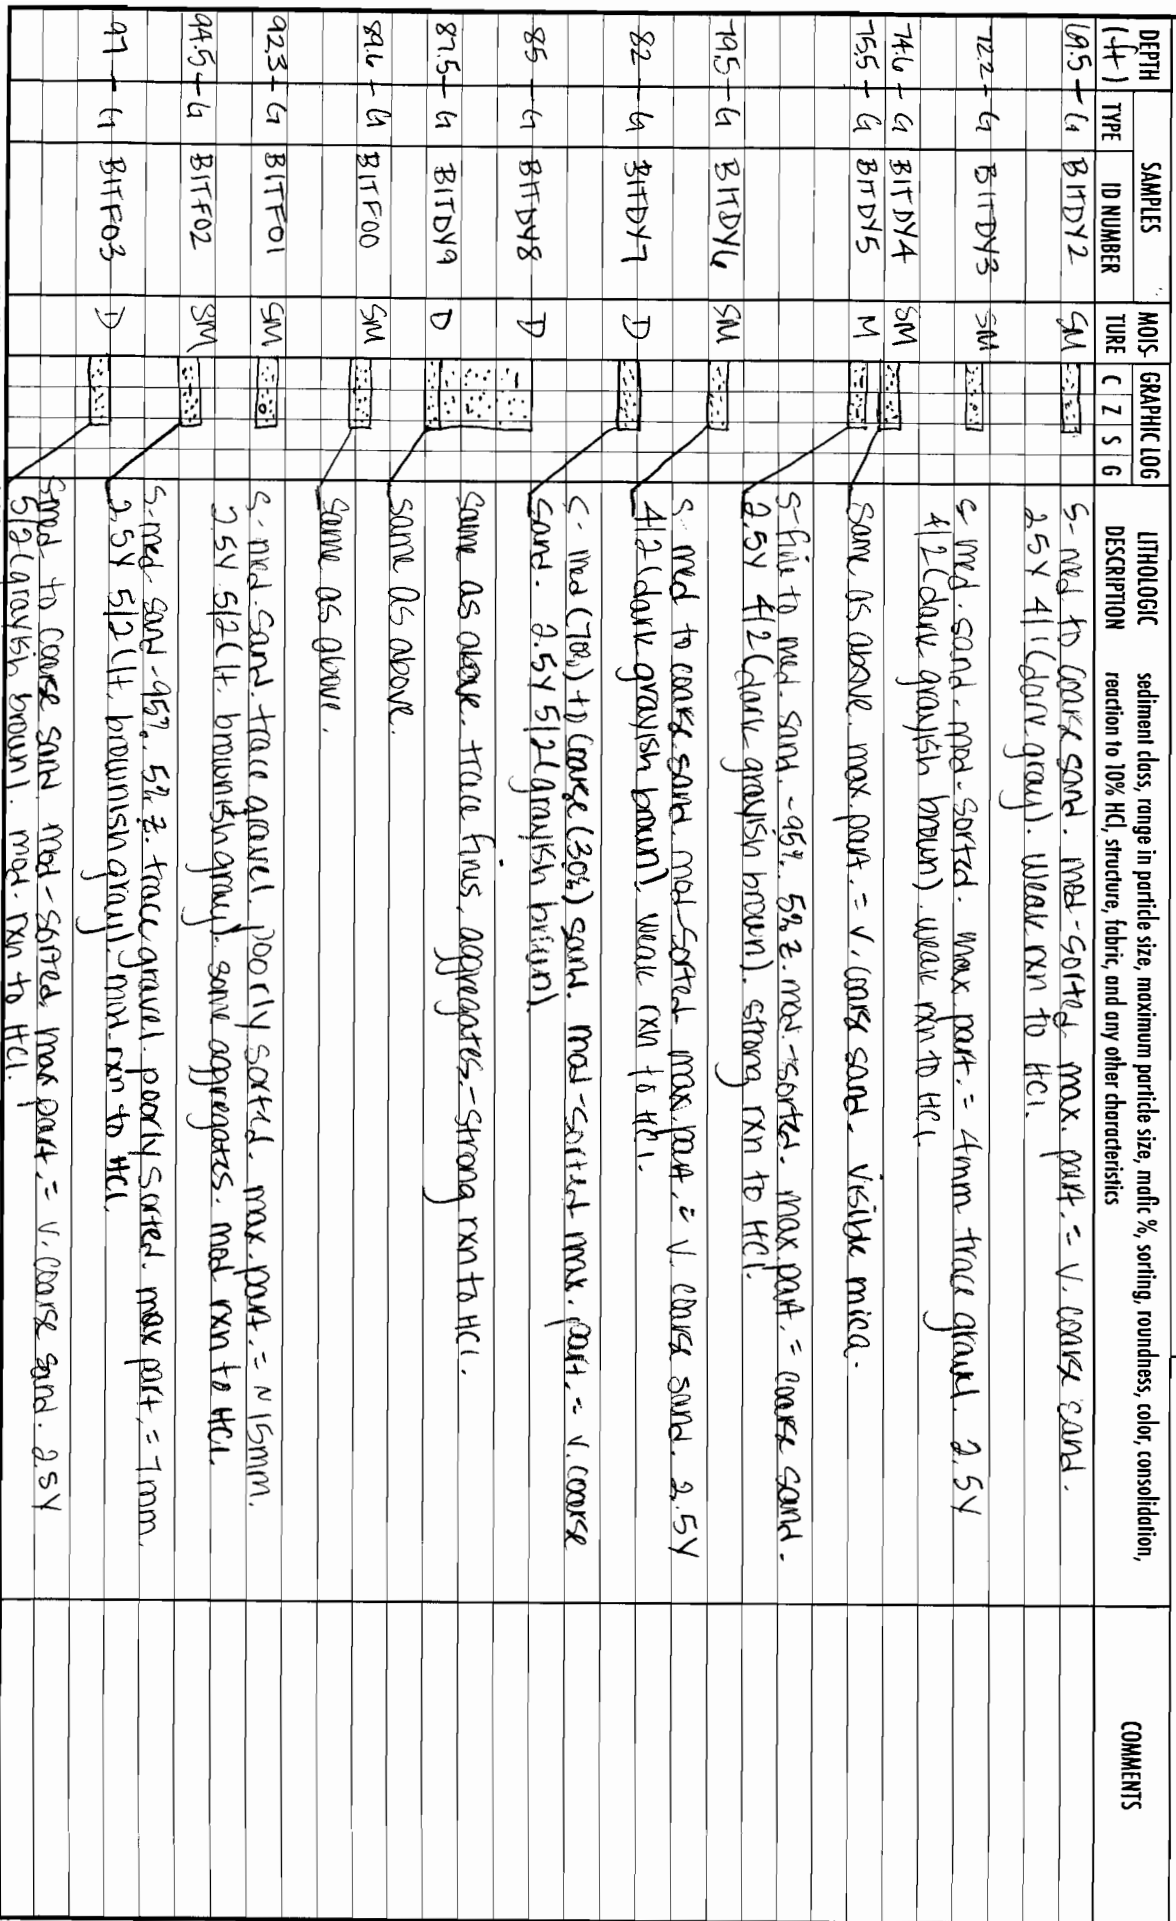 DEPTH (ft) SAMPLES MOIS- GRAPHIC LOG LITHOLOGIC sediment class, range in particle size, maximum particle size, mafic %, sorting, roundness, color, consolidation,
TYPE ID NUMBER TURE C Z S G DESCRIPTION reaction to 10% HCl, structure, fabric, and any other characteristics COMMENTS
69.5 G B1TDY2 SM S- med to coarse sand. mod-sorted max. part. = v. coarse sand.
2.5Y 4/1 (dark gray). Weak rxn to HCl.
72.2 G B1TDY3 SM S-med. sand. mod-sorted. max part. = 4mm trace gravel. 2.5Y
4/2 (dark grayish brown). weak rxn to HCl.
74.6 G B1TDY4 SM Same as above. max. part. = v. coarse sand. visible mica.
75.5 G B1TDY5 M S-fine to med. sand. -95%. 5% z. mod.-sorted. max. part. = coarse sand.
2.5Y 4/2 (dark grayish brown). strong rxn to HCl.
79.5 G B1TDY6 SM S- med to coarse sand. mod-sorted max. part. = v. coarse sand. 2.5Y
4/2 (dark grayish brown). weak rxn to HCl.
82 G B1TDY7 D S- med (70%) to coarse (30%) sand. mod-sorted max. part. = v. coarse
sand. 2.5Y 5/2 (grayish brown).
85 G B1TDY8 D Same as above. trace fines, aggregates.-strong rxn to HCl.
87.5 G B1TDY9 D same as above.
89.6 G B1TF00 SM same as above.
92.3 G B1TF01 SM S-med. sand. trace gravel. poorly sorted. max. part. = ~15mm.
2.5Y 5/2 (lt. brownish gray). some aggregates. mod rxn to HCl.
94.5 G B1TF02 SM S-med. sand -95%. 5% z. trace gravel. poorly sorted. max part. = 7mm.
2.5Y 5/2 (lt. brownish gray). mod. rxn to HCl.
97 G B1TF03 D Smed- to coarse sand mod-sorted. max part. = v. coarse sand. 2.5Y
5/2 (grayish brown). mod. rxn to HCl.